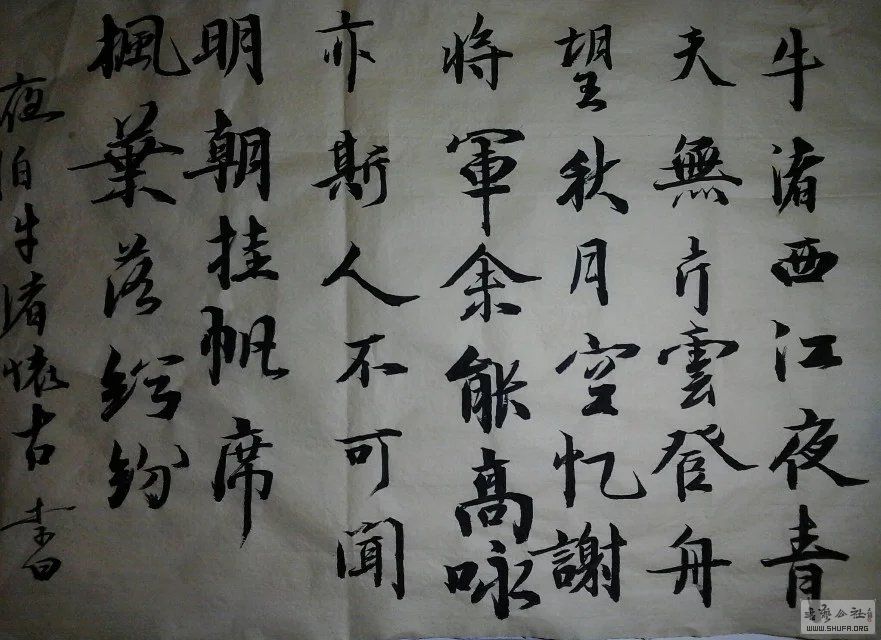 牛渚西江夜青
夫無片雲登舟
望秋月空忆謝
将軍余能高咏
亦斯人不可聞
明朝挂帆席
楓葉落紛紛
夜泊牛渚懷古 書
书法公社
WWW.SHUFA.ORG